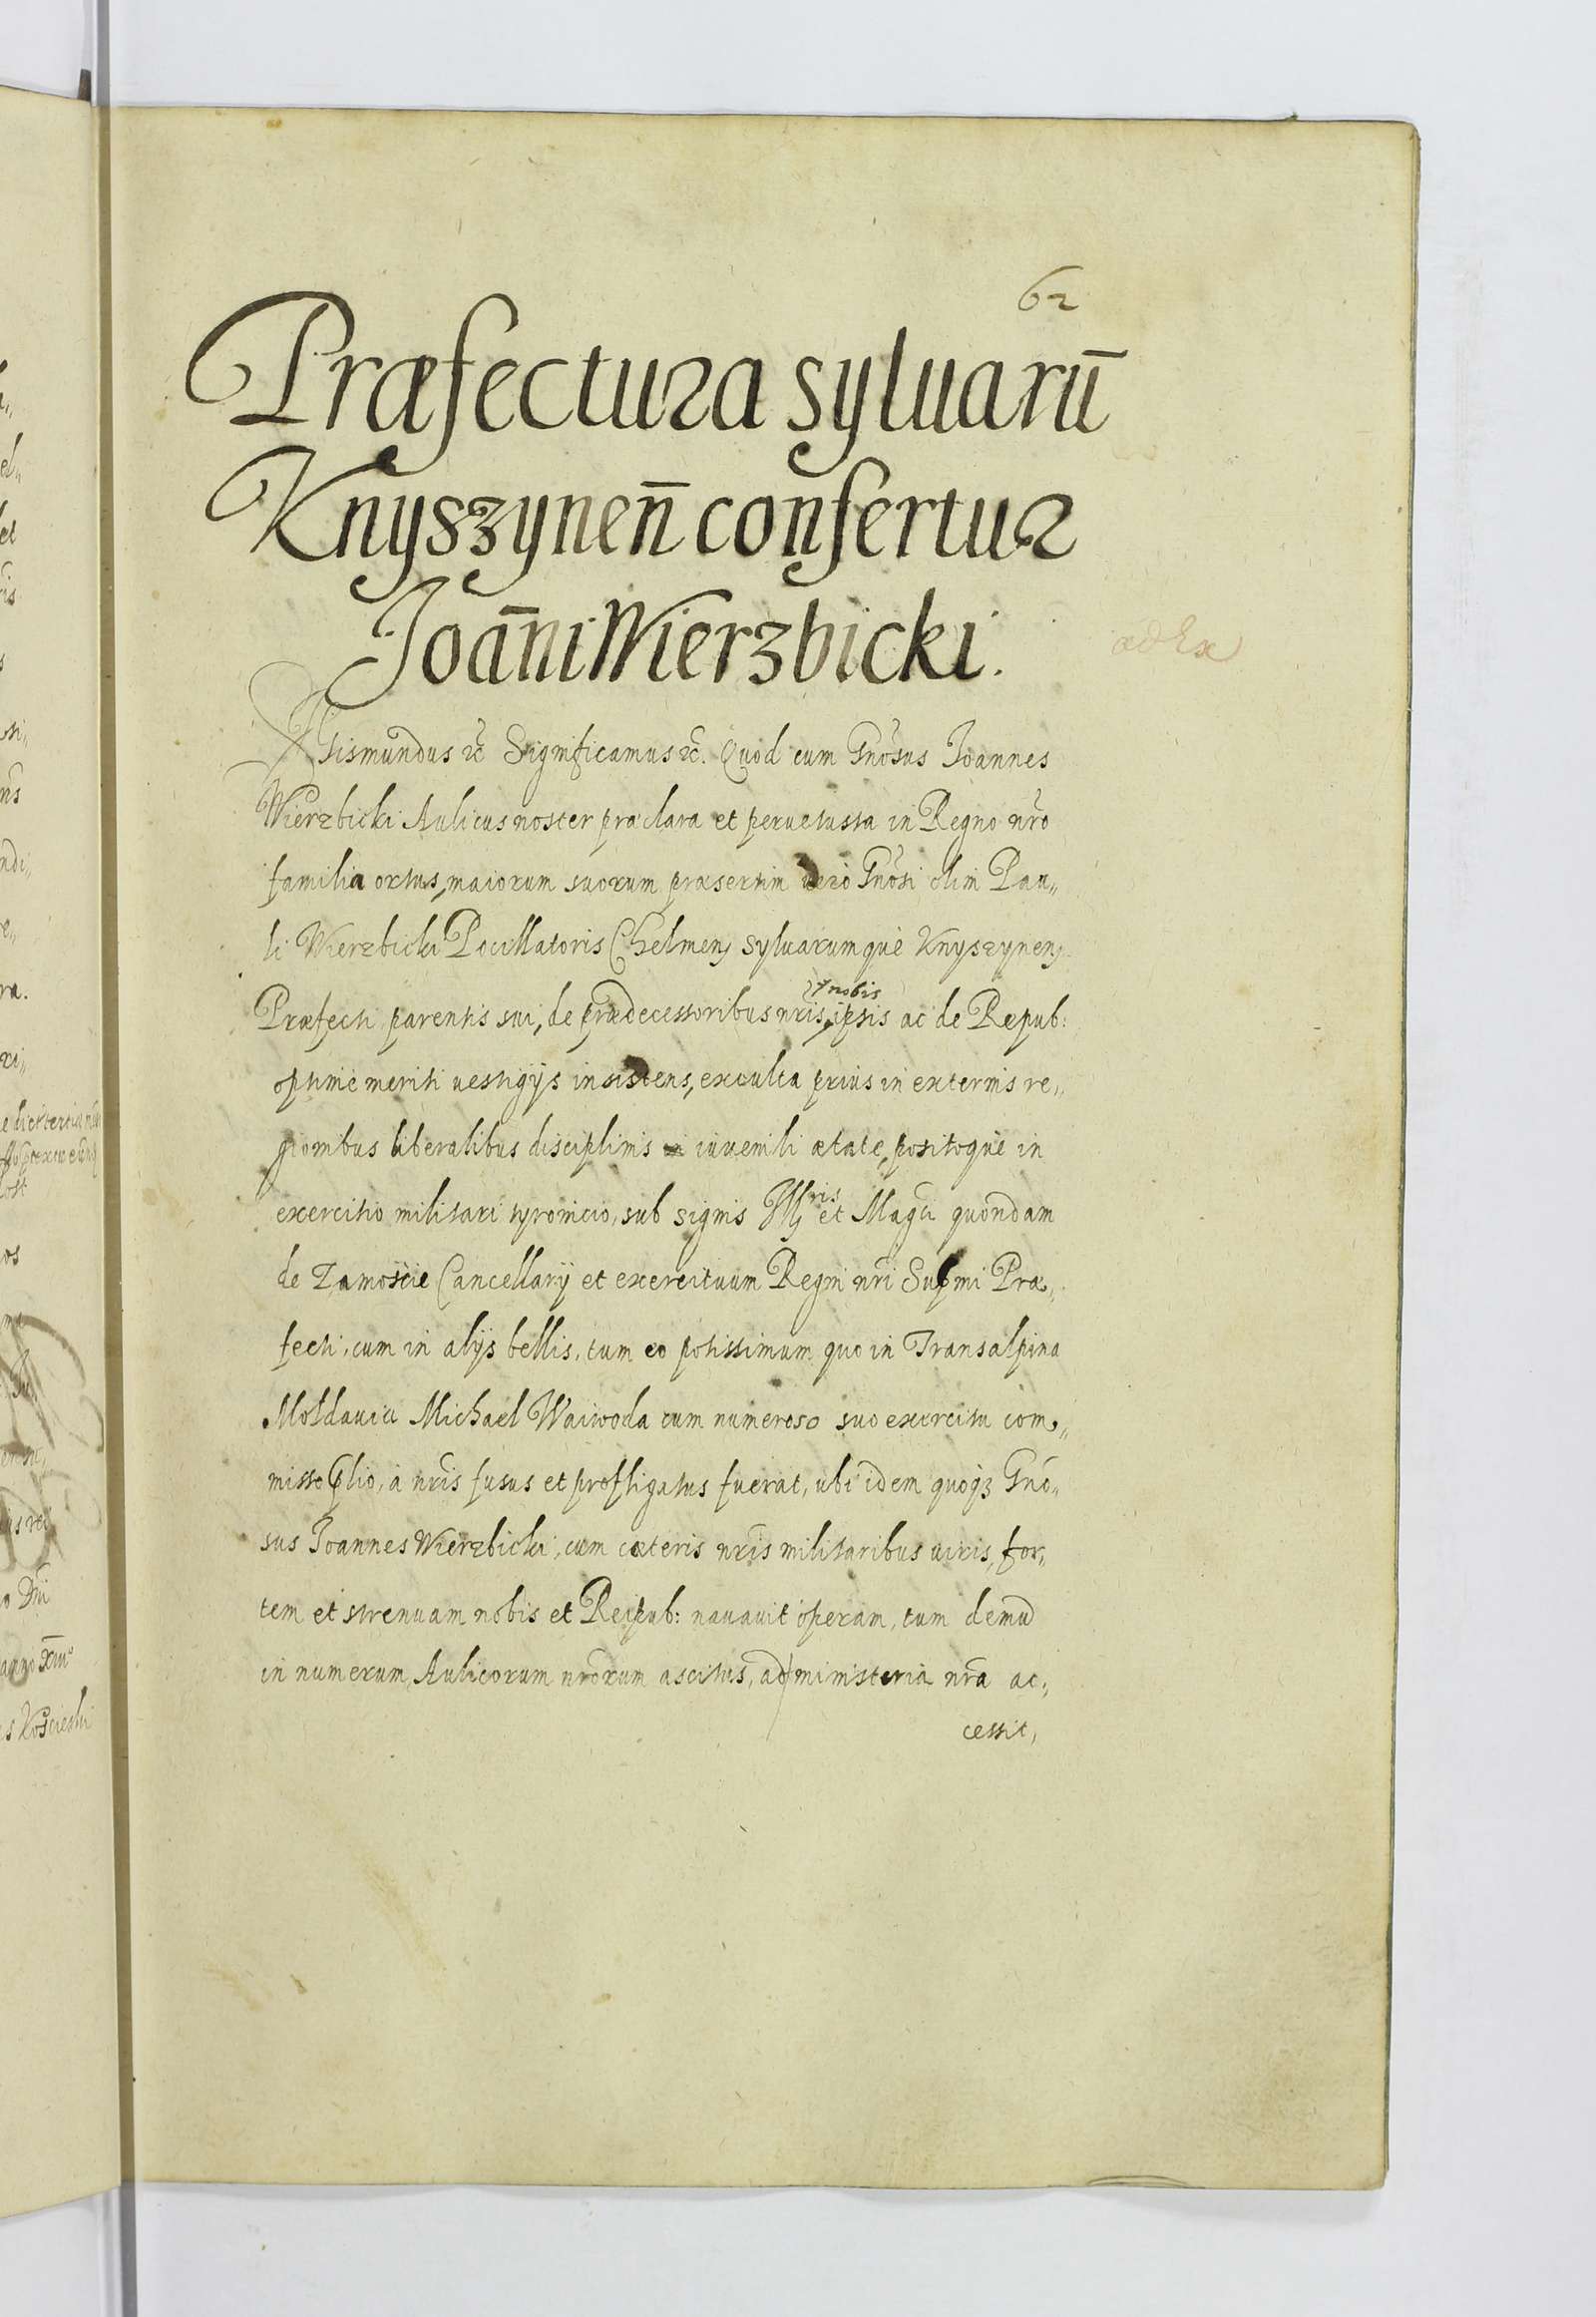 62
Præfectura syluarū
Knyszynen̄ confertur
Joan̄i Wierzbicki.
Sigismundus etc̄ Significamus etc̄. Quod cum Gn̄osus Joannes
Wierzbicki Aulicus noster præclara et peruetusta in Regno nr̄o
familia ortus, maiorum suorum præsertim vero Gn̄osi olim Pau„
li Wierzbicki Pocillatoris Chelmen̄ syluarumque Knyszynen̄
nobis
Præfecti parentis sui, de prædecessoribus nr̄is, ipsis ac de Repub:
optime meriti uestigijs insistens, exculta prius in externis re„
gionibus liberalibus disciplinis iuuenili ætate, positoque in
exercitio militari tyrocinio, sub signis Illris et Magci quondam
de Zamoscie Cancellarij et exercituum Regni nr̄i Supmi Præ„
fecti, cum in alijs bellis, tum eo potissimum quo in Transalpina
Moldauia Michael Waiwoda cum numeroso suo exercitu com„
misso plio, a nr̄is fusus et profligatus fuerat, ubi idem quoqz Gn̄o„
sus Joannes Wierzbicki, cum cæteris nr̄is militaribus uiris, for„
tem et strenuam nobis et Reipub: nauauit operam, tum demū
in numerum Aulicorum nr̄orum ascitus, ad ministeria nr̄a ac„
cessit,